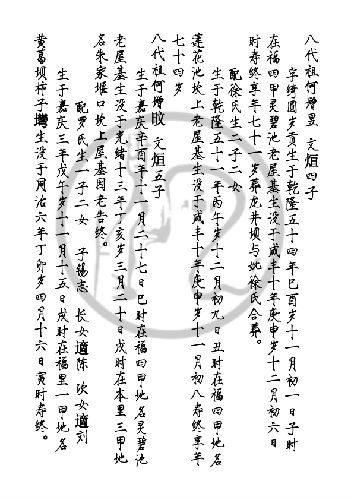 八代祖何增昱 文烜四子
字绪圆岁贡生于乾隆五十四年己酉岁十一月初一日子时
在福四甲灵碧池老屋基生没于咸丰十年庚申岁十二月初六日
时寿终享年七十一岁葬龙井坝与妣徐氏合葬。
配徐氏生一子二女
生于乾隆五十一年丙午岁十二月初九日丑时在福四甲地名
莲花池坎上老屋基生没于咸丰十年庚申岁十一月初八寿终享年
七十四岁
八代祖何增 文烜五子
生于嘉庆辛酉年十一月二十七日巳时在福四甲地名灵碧池
老屋基生没于光绪十三年丁亥岁三月二十日戌时在本里三甲地
名朱家堰口坎上屋基因老告终。
配罗氏生一子二女 子锡志 长女适陈 次女适刘
生于嘉庆三年戊午岁十一月十五日戌时在福里一甲地名
黄葛坝柿子湾生没于同治六年丁卯岁四月十六日寅时寿终。